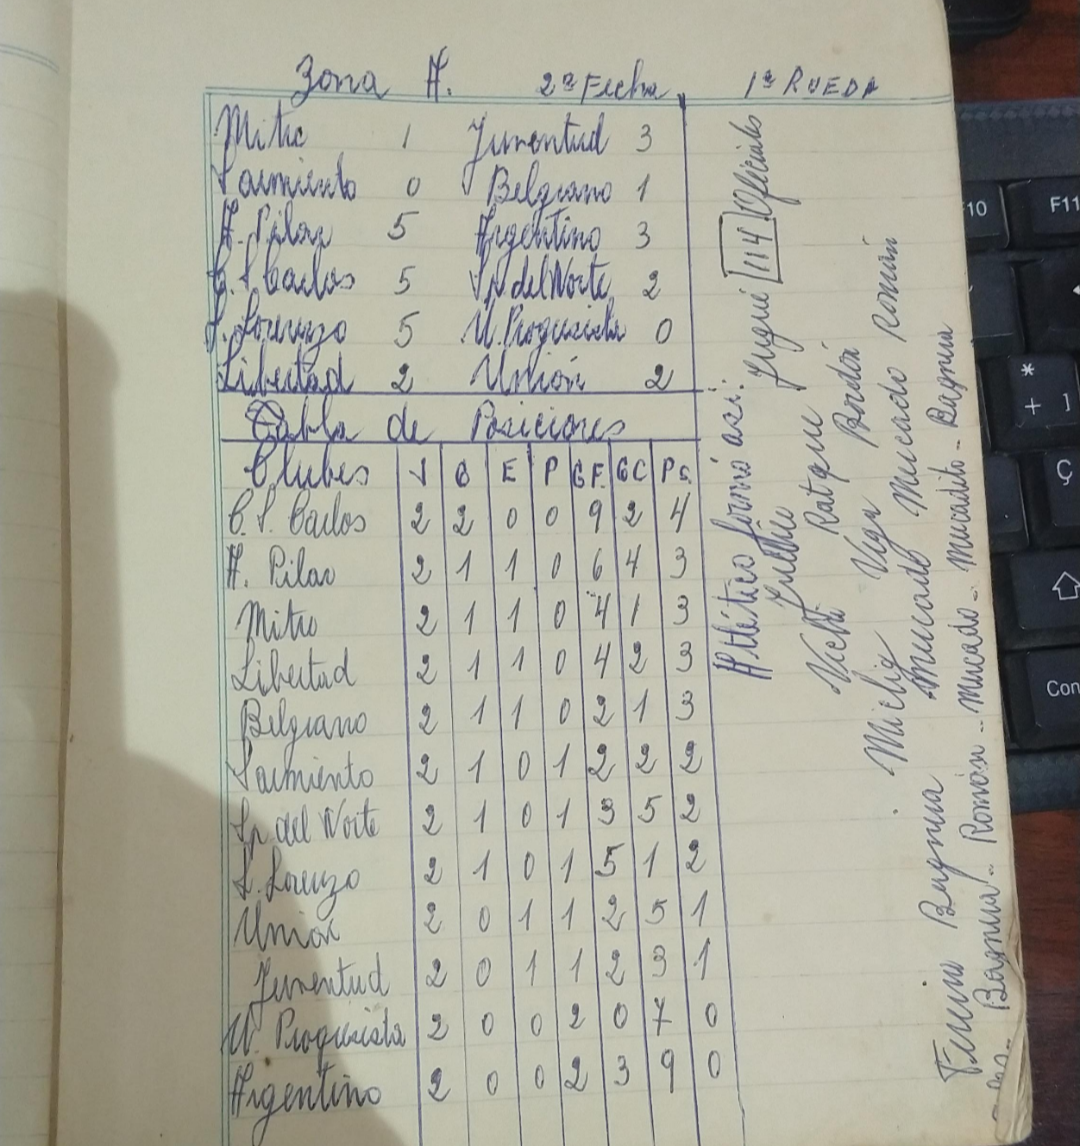 Zona A. 2ª Fecha 1ª RUEDA
Mitre 1 Juventud 3
Sarmiento 0 Belgrano 1
A. Pilar 5 Argentino 3
C. S. Carlos 5 Sp del Norte 2
S. Lorenzo 5 U. Progresista 0
Libertad 2 Unión 2
Tabla de Posiciones
Clubes J G E P GF. GC PG.
C. S. Carlos 2 2 0 0 9 2 4
A. Pilar 2 1 1 0 6 4 3
Mitre 2 1 1 0 4 1 3
Libertad 2 1 1 0 4 2 3
Belgrano 2 1 1 0 2 1 3
Sarmiento 2 1 0 1 2 2 2
Sp del Norte 2 1 0 1 3 5 2
S. Lorenzo 2 1 0 1 5 1 2
Unión 2 0 1 1 2 5 1
Juventud 2 0 1 1 2 3 1
U. Progresista 2 0 0 2 0 7 0
Argentino 2 0 0 2 3 9 0
Jugué 114 Oficiales
Atlético formó así:
Vega
Mercado Mercado Román
Bagnera
Román - Mercado - Mercadito - Bagnera
F10
F11
*
+ ]
Ç
Con